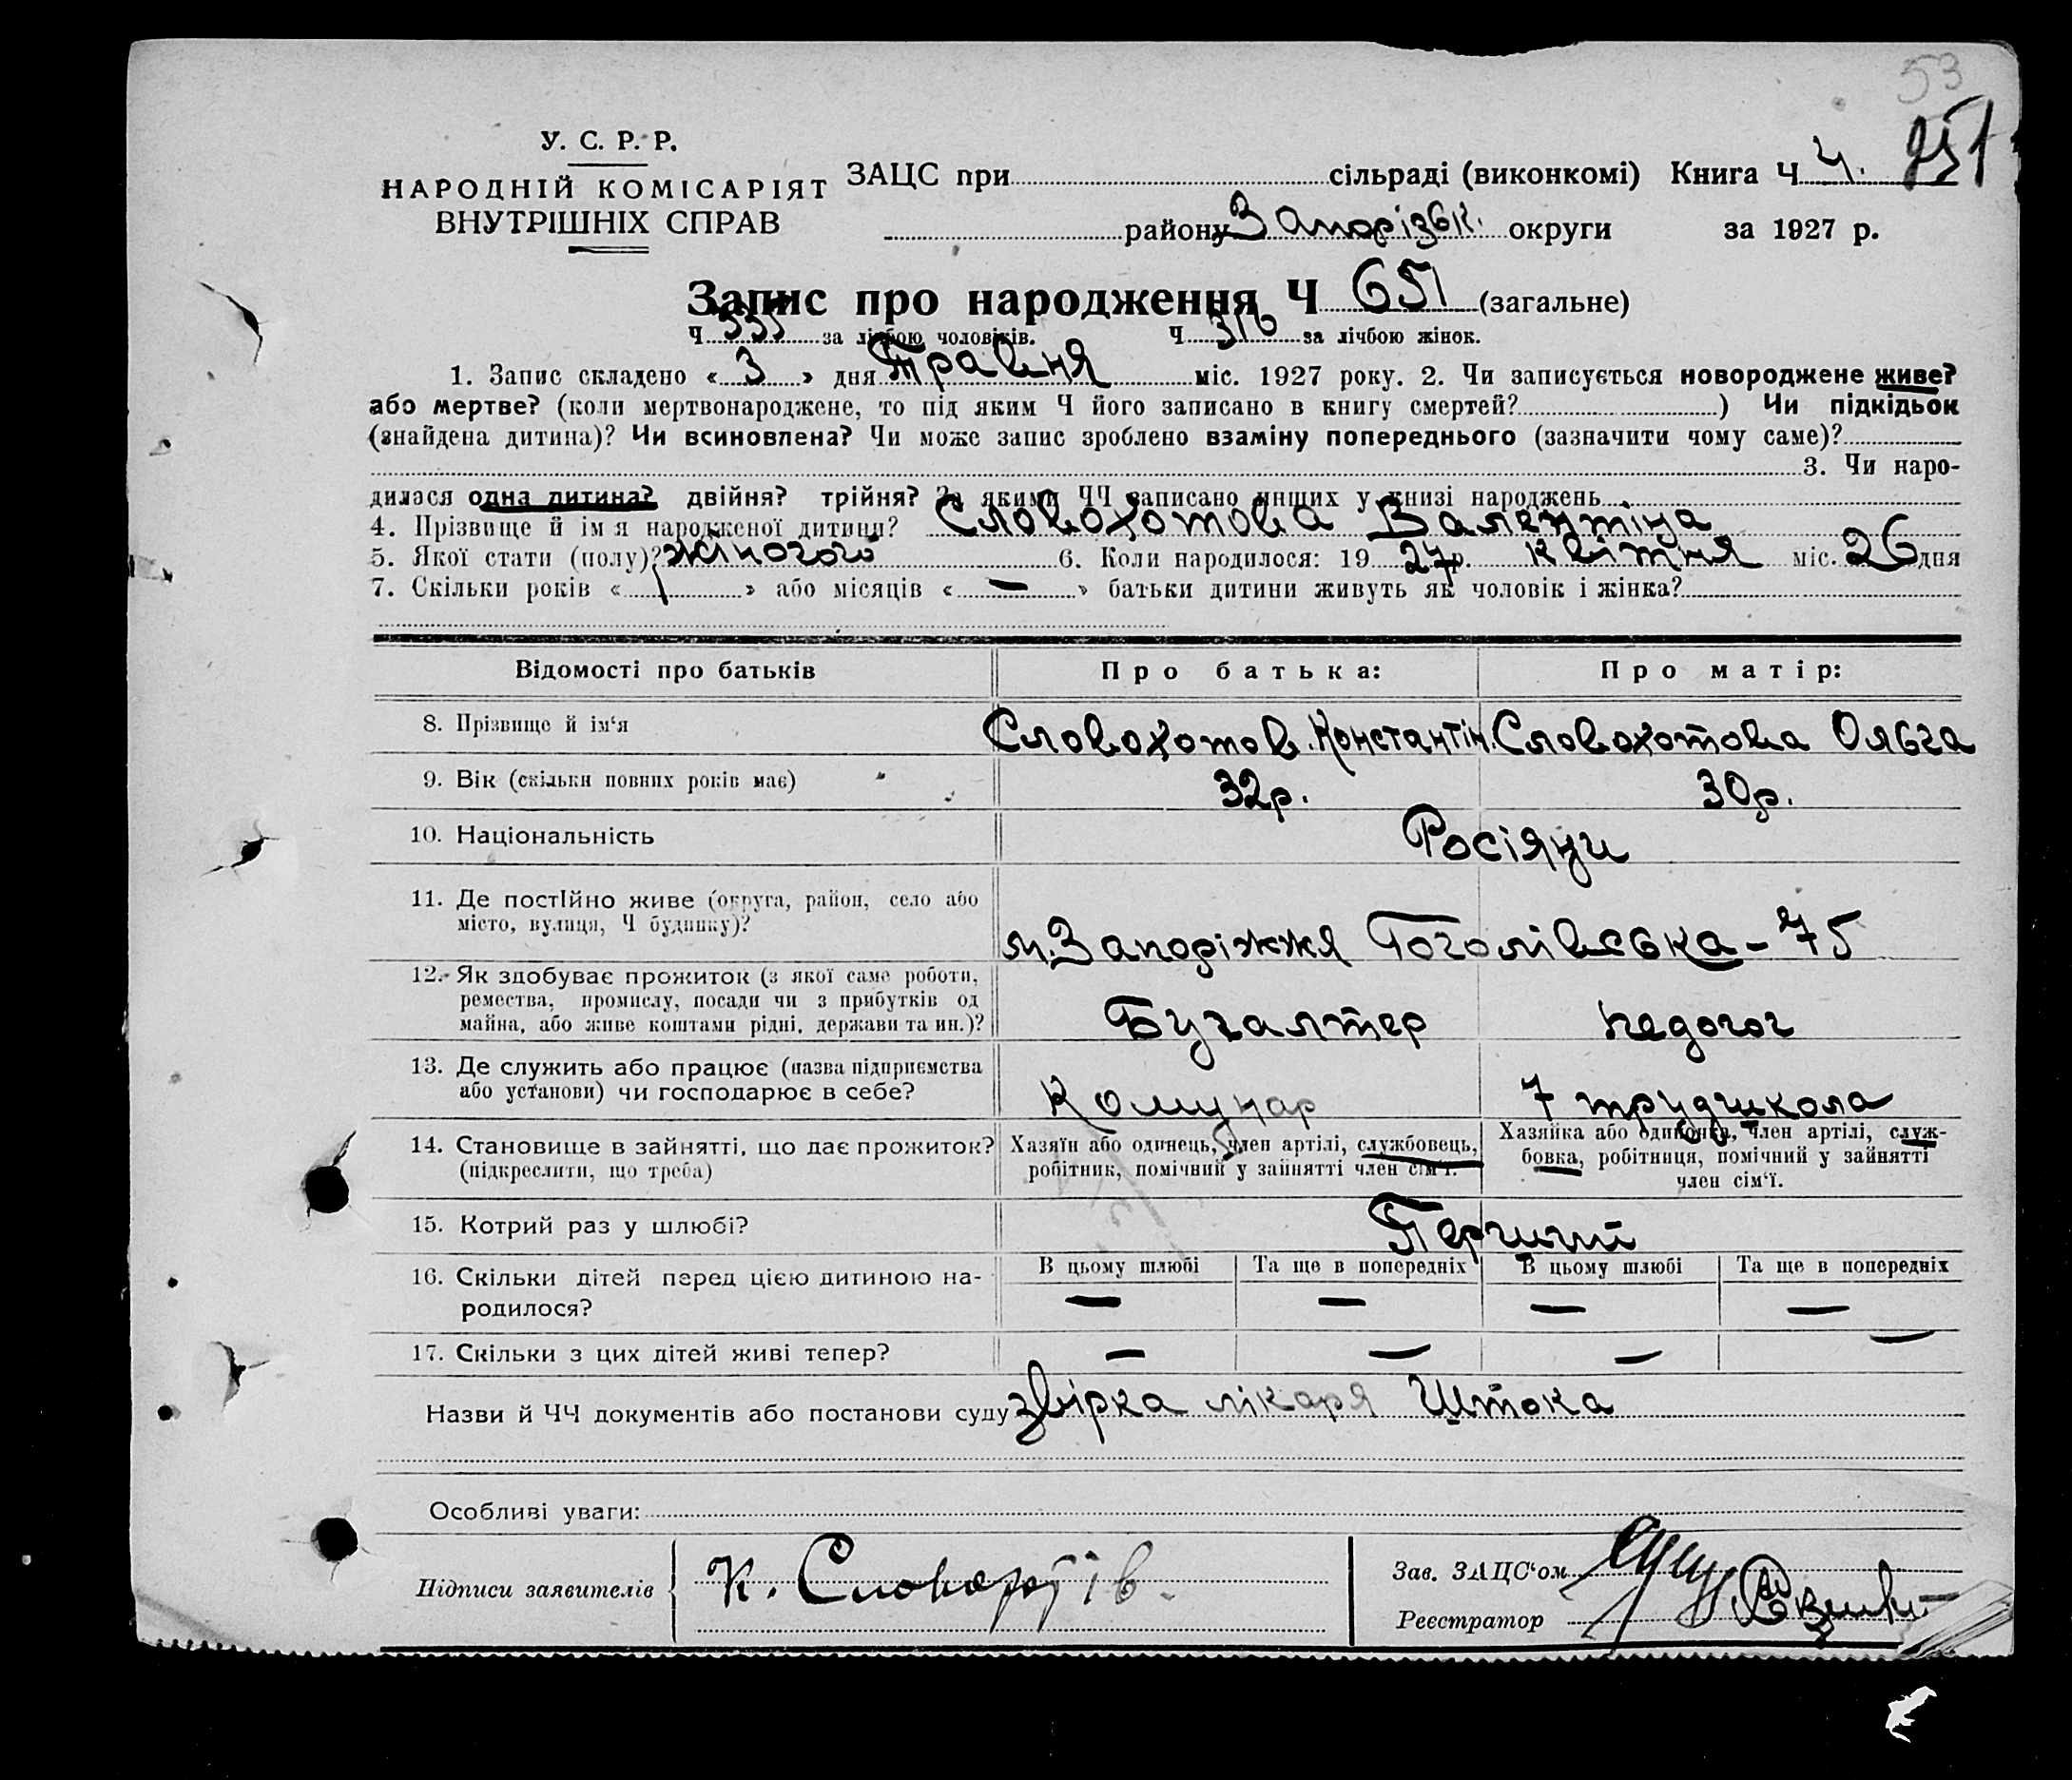 53
У. С. Р. Р.
НАРОДНІЙ КОМІСАРІЯТ
ВНУТРІШНІХ СПРАВ
ЗАЦС при сільраді (виконкомі) Книга Ч 4. 951
району Запорізьк. округи за 1927 р.
Запис про народження Ч 651 (загальне)
Ч 335 за лічбою чоловіків. Ч 316 за лічбою жінок.
1. Запис складено « 3 » дня Травня міс. 1927 року. 2. Чи записується новороджене живе?
або мертве? (коли мертвонароджене, то під яким Ч його записано в книгу смертей? ) Чи підкідьок
(знайдена дитина)? Чи всиновлена? Чи може запис зроблено взаміну попереднього (зазначити чому саме)?
3. Чи наро-
дилася одна дитина? двійня? трійня? За якими ЧЧ записано инших у книзі народжень
4. Прізвище й ім я народженої дитини? Словохотова Валентіна
5. Якої стати (полу)? жіночого 6. Коли народилося: 19 27 р. квітня міс. 26 дня
7. Скільки років « 1 » або місяців « — » батьки дитини живуть як чоловік і жінка?
Відомості про батьків Про батька: Про матір:
8. Прізвище й ім‘я Словохотов Константін. Словохотова Ольга
9. Вік (скільки повних років має) 32р. 30р.
10. Національність Росіяни
11. Де постІйно живе (округа, район, село або
місто, вулиця, Ч будинку)? м. Запоріжжя Гоголівська – 75
12. Як здобуває прожиток (з якої саме роботи,
ремества, промислу, посади чи з прибутків од
майна, або живе коштами рідні, держави та ин.)? Бугалтер педогог
13. Де служить або працює (назва підприємства
або установи) чи господарює в себе? Комунар 7 трудшкола
14. Становище в зайнятті, що дає прожиток?
(підкреслити, що треба)
Хазяїн або одинець, член артілі, службовець,
робітник, помічний у зайнятті член сім‘ї.
Хазяйка або одиночка, член артілі, служ-
бовка, робітниця, помічний у зайнятті
член сім‘ї.
15. Котрий раз у шлюбі? Перший
16. Скільки дітей перед цією дитиною на-
родилося?
В цьому шлюбі Та ще в попередніх В цьому шлюбі Та ще в попередніх
— — — —
17. Скільки з цих дітей живі тепер? — — — —
Назви й ЧЧ документів або постанови суду звірка лікаря Штока
Особливі уваги:
Підписи заявителів К.
Зав. ЗАЦС‘ом
Реєстратор